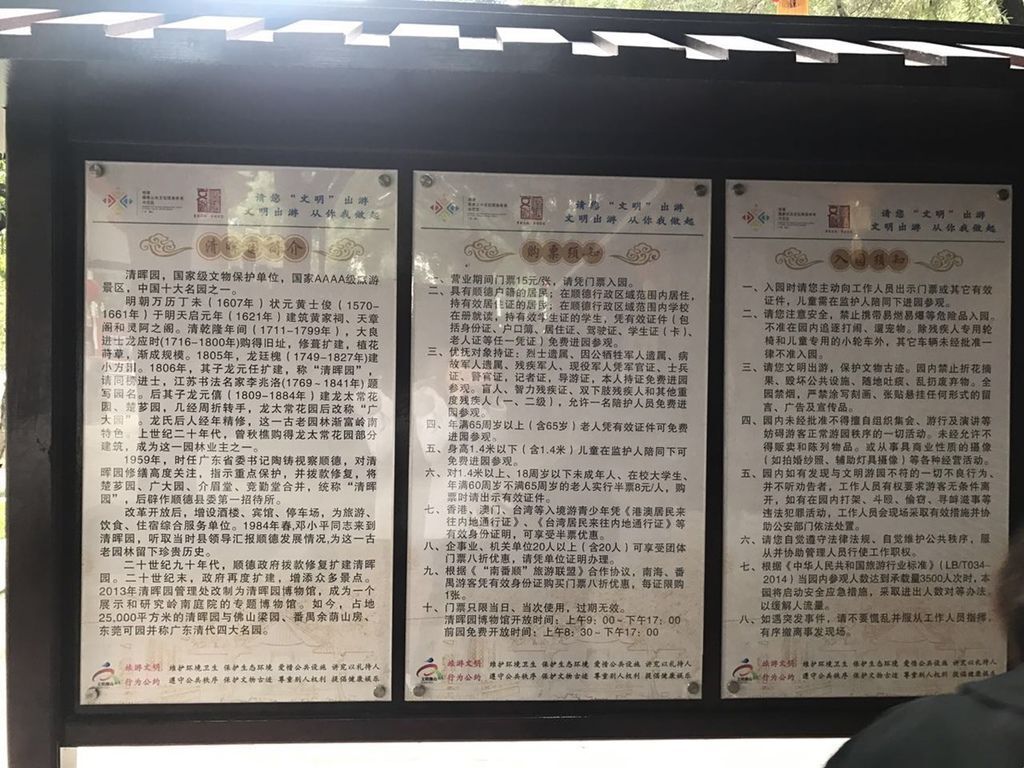 请您“文明”出游
文明出游 从你我做起
清晖园简介
清晖园，国家级文物保护单位，国家AAAA级旅游
景区，中国十大名园之一。
明朝万历丁未（1607年）状元黄士俊（1570-
1661年）于明天启元年（1621年）建筑黄家祠、天章
阁和灵阿之阁。清乾隆年间（1711-1799年），大良
进士龙应时(1716-1800年)购得旧址，修葺扩建，植花
莳草，渐成规模。1805年，龙廷槐（1749-1827年)建
小方圃。1806年，其子龙元任扩建，称“清晖园”，
请同榜进士，江苏书法名家李兆洛(1769～1841年)题
写园名。后其子龙元僖（1809-1884年）建龙太常花
园、楚芗园，几经周折转手，龙太常花园后改称“广
大园”。龙氏后人经年精修，这一古老园林渐富岭南
特色。上世纪二十年代，曾秋樵购得龙太常花园部分
建筑，成为这一园林业主之一。
1959年，时任广东省委书记陶铸视察顺德，对清
晖园修缮高度关注，指示重点保护，并拨款修复，将
楚芗园、广大园、介眉堂、竞勤堂合并，统称“清晖
园”，后辟作顺德县委第一招待所。
改革开放后，增设酒楼、宾馆、停车场，为旅游、
饮食、住宿综合服务单位。1984年春,邓小平同志来到
清晖园，听取当时县领导汇报顺德发展情况,为这一古
老园林留下珍贵历史。
二十世纪九十年代，顺德政府拨款修复扩建清晖
园。二十世纪末，政府再度扩建，增添众多景点。
2013年清晖园管理处改制为清晖园博物馆，成为一个
展示和研究岭南庭院的专题博物馆。如今，占地
25,000平方米的清晖园与佛山梁园、番禺余荫山房、
东莞可园并称广东清代四大名园。
旅游文明
行为公约
维护环境卫生 保护生态环境 爱惜公共设施 讲究以礼待人
遵守公共秩序 保护文物古迹 尊重别人权利 提倡健康娱乐
请您“文明”出游
文明出游 从你我做起
购票须知
一、营业期间门票15元/张，请凭门票入园。
二、具有顺德户籍的居民；在顺德行政区域范围内居住，
持有效居住证的居民；在顺德行政区域范围内学校
在册就读，持有效学生证的学生，凭有效证件（包
括身份证、户口簿、居住证、驾驶证、学生证（卡）、
老人证等任一凭证）免费进园参观。
三、优抚对象持证：烈士遗属、因公牺牲军人遗属、病
故军人遗属、残疾军人、现役军人凭军官证、士兵
证、警官证，记者证，导游证，本人持证免费进园
参观。盲人、智力残疾证、双下肢残疾人和其他重
度残疾人（一、二级），允许一名陪护人员免费进
园参观。
四、年满65周岁以上（含65岁）老人凭有效证件可免费
进园参观。
五、身高1.4米以下（含1.4米）儿童在监护人陪同下可
免费进园参观。
六、对1.4米以上、18周岁以下未成年人、在校大学生、
年满60周岁不满65周岁的老人实行半票8元/人，购
票时请出示有效证件。
七、香港，澳门、台湾等入境游青少年凭《港澳居民来
往内地通行证》、《台湾居民来往内地通行证》等
有效身份证明，可享受半票优惠。
八、企事业、机关单位20人以上（含20人）可享受团体
门票八折优惠，请凭单位证明办理。
九、根据《“南番顺”旅游联盟》合作协议，南海、番
禺游客凭有效身份证购买门票八折优惠，每证限购
1张。
十、门票只限当日、当次使用，过期无效。
清晖园博物馆开放时间：上午9：00～下午17：00
前园免费开放时间：上午8：30～下午17：00
旅游文明
行为公约
维护环境卫生 保护生态环境 爱惜公共设施 讲究以礼待人
遵守公共秩序 保护文物古迹 尊重别人权利 提倡健康娱乐
请您“文明”出游
文明出游 从你我做起
入园须知
一、入园时请您主动向工作人员出示门票或其它有效
证件，儿童需在监护人陪同下进园参观。
二、请您注意安全，禁止携带易燃易爆等危险品入园。
不准在园内追逐打闹、遛宠物。除残疾人专用轮
椅和儿童专用的小轮车外，其它车辆未经批准一
律不准入园。
三、请您文明游园，保护文物古迹。园内禁止折花摘
果、毁坏公共设施、随地吐痰、乱扔废弃物。全
园禁烟，严禁涂写刻画、张贴悬挂任何形式的留
言、广告及宣传品。
四、园内未经批准不得擅自组织集会、游行及演讲等
妨碍游客正常游园秩序的一切活动。未经允许不
得贩卖和陈列物品。或从事具商业性质的摄像
（如拍婚纱照、辅助灯具摄像）等各种经营活动。
五、园内如有发现与文明游园不符的一切不良行为，
并不听劝告者，工作人员有权要求游客无条件离
开，如有在园内打架、斗殴、偷窃、寻衅滋事等
违法犯罪活动，工作人员会现场采取有效措施并协
助公安部门依法处置。
六、请您自觉遵守法律法规、自觉维护公共秩序，服
从并协助管理人员行使工作职权。
七、根据《中华人民共和国旅游行业标准》（LB/T034-
2014）当园内参观人数达到承载量3500人次时，本
园将启动安全应急措施，采取进出人数对等办法，
以缓解人流量。
八、如遇突发事件，请不要慌乱并服从工作人员指挥，
有序撤离事发现场。
旅游文明
行为公约
维护环境卫生 保护生态环境 爱惜公共设施 讲究以礼待人
遵守公共秩序 保护文物古迹 尊重别人权利 提倡健康娱乐